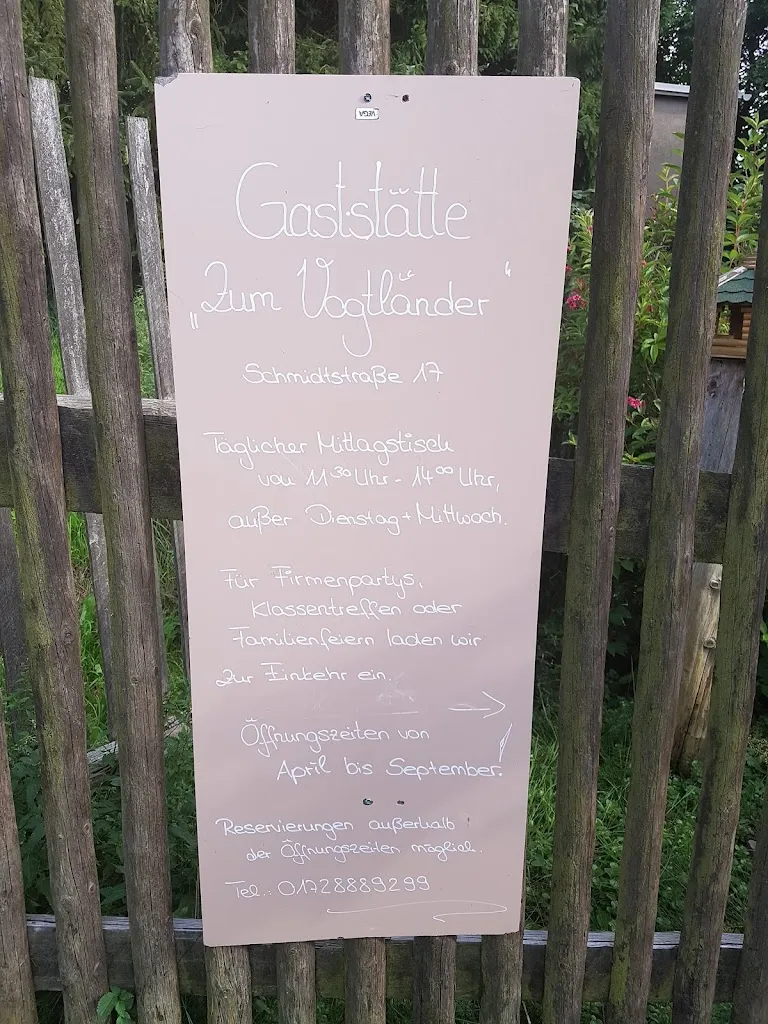 VEGA
Gaststätte
„Zum Vogtländer“
Schmidtstraße 17
Täglicher Mittagstisch
von 11³⁰ Uhr - 14⁰⁰ Uhr,
außer Dienstag + Mittwoch.
Für Firmenpartys,
Klassentreffen oder
Familienfeiern laden wir
zur Einkehr ein.
Öffnungszeiten von
April bis September!
Reservierungen außerhalb
der Öffnungszeiten möglich.
Tel.: 01728889299